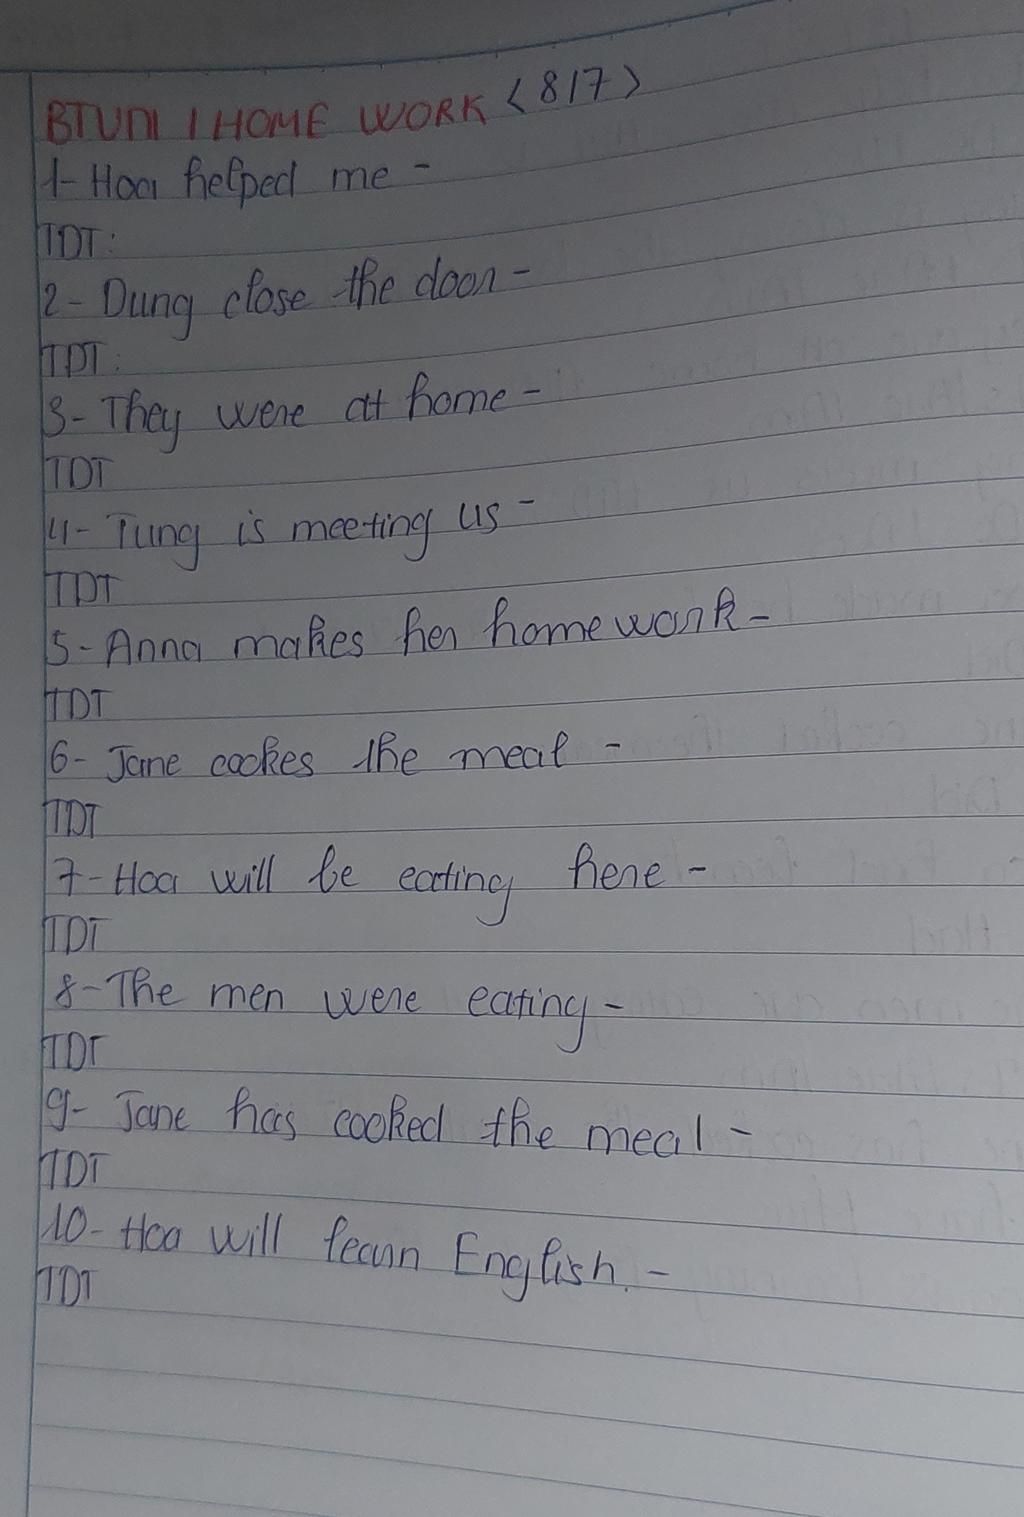 BTVN / HOME WORK <8/7>
1- Hoa helped me -
TDT:
2- Dung close the door -
TDT:
3- They were at home -
TDT
4- Tung is meeting us -
TDT
5- Anna makes her home work -
TDT
6- Jane cookes the meal -
TDT
7- Hoa will be eating here -
TDT
8- The men were eating -
TDT
9- Jane has cooked the meal -
TDT
10- Hoa will learn English. -
TDT